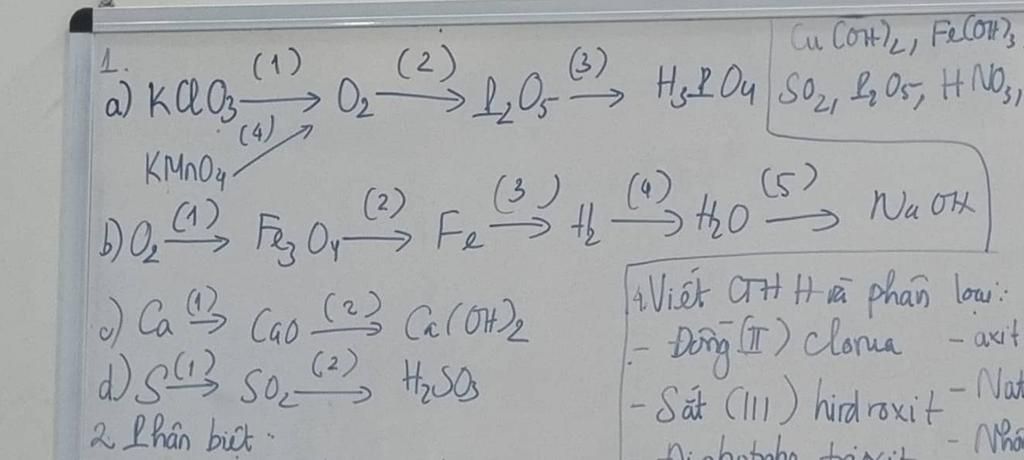 1.
a) KClO3 (1)→ O2 (2)→ P2O5 (3)→ H3PO4
KMnO4 (4)
b) O2 (1)→ Fe3O4 (2)→ Fe (3)→ H2 (4)→ H2O (5)→ NaOH
c) Ca (1)→ CaO (2)→ Ca(OH)2
d) S (1)→ SO2 (2)→ H2SO3
2. Phân biệt:
Cu(OH)2, Fe(OH)3
SO2, P2O5, HNO3,
4. Viết CTHH và phân loại:
- Đồng (II) clorua - axit
- Sắt (III) hidroxit - Nat